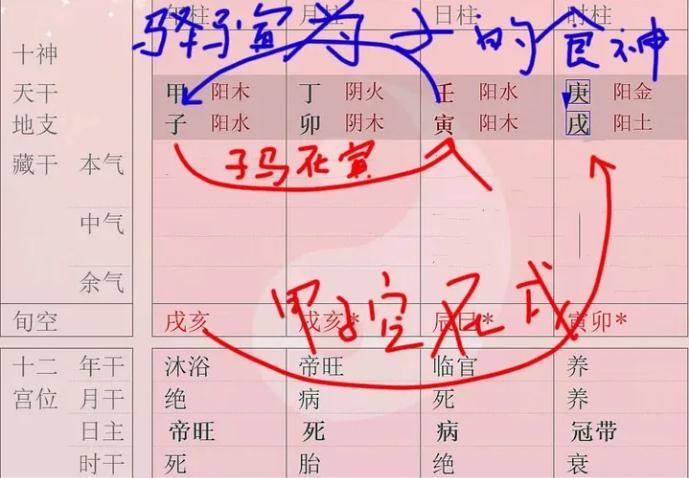 年柱 月柱 日柱 时柱
驿马寅为子的食神
十神
天干 甲 阳木 丁 阴火 壬 阳水 庚 阳金
地支 子 阳水 卯 阴木 寅 阳木 戌 阳土
藏干 本气
子马在寅
中气
余气
甲子空在戌
旬空 戌亥 戌亥* 辰巳* 寅卯*
十二 年干 沐浴 帝旺 临官 养
宫位 月干 绝 病 死 养
日主 帝旺 死 病 冠带
时干 死 胎 绝 衰